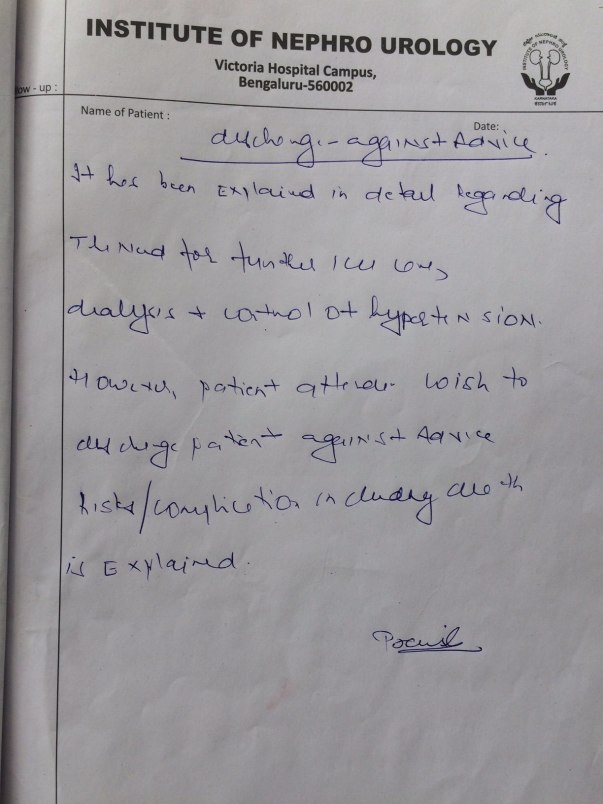 INSTITUTE OF NEPHRO UROLOGY
Victoria Hospital Campus,
Bengaluru-560002
INSTITUTE OF NEPHRO UROLOGY
KARNATAKA
low - up :
Name of Patient :
Date:
discharge - against Advice
It has been Explained in detail Regarding
The Need for further ICU care,
dialysis + control of hypertension.
However, patient attender wish to
discharge patient against Advice
Risks/complication including death
is Explained.